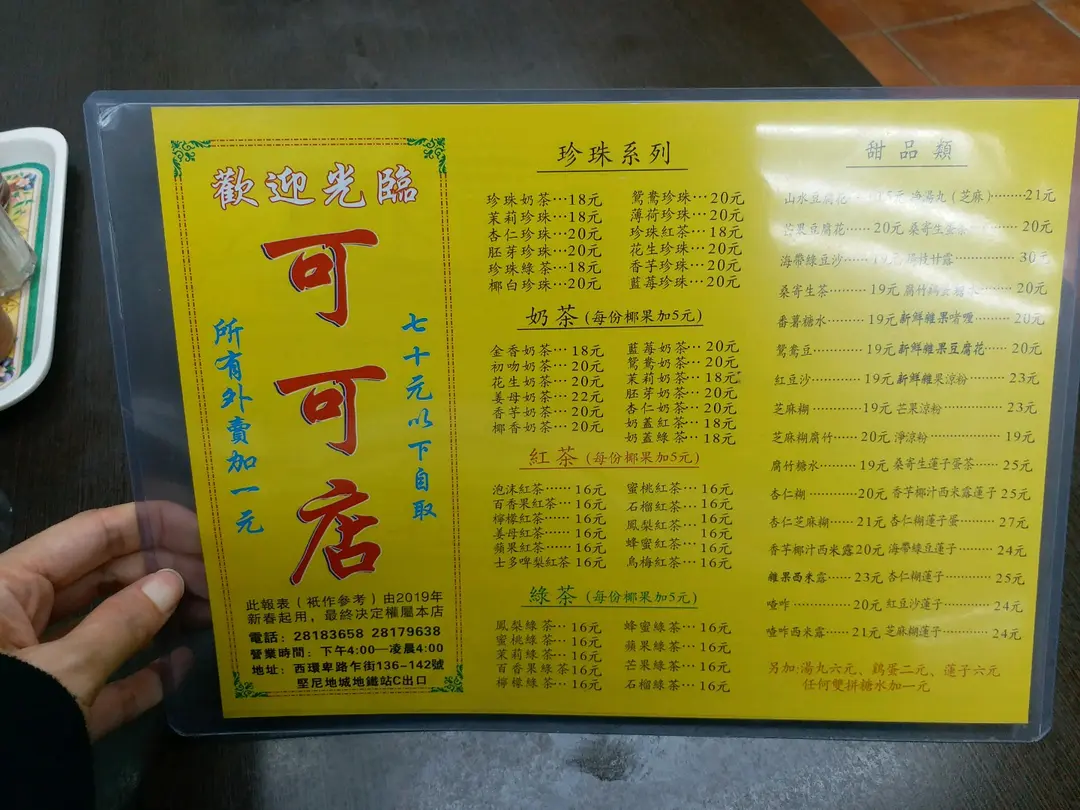 歡迎光臨
可可店
七十元以下自取
所有外賣加一元
此報表（衹作參考）由2019年
新春起用，最終決定權屬本店
電話：28183658 28179638
營業時間：下午4:00—凌晨4:00
地址：西環卑路乍街136-142號
堅尼地城地鐵站C出口
珍珠系列
珍珠奶茶…18元 鴛鴦珍珠…20元
茉莉珍珠…18元 薄荷珍珠…20元
杏仁珍珠…20元 珍珠紅茶…18元
胚芽珍珠…20元 花生珍珠…20元
珍珠綠茶…18元 香芋珍珠…20元
椰白珍珠…20元 藍莓珍珠…20元
奶茶(每份椰果加5元)
金香奶茶…18元 藍莓奶茶…20元
初吻奶茶…20元 鴛鴦奶茶…20元
花生奶茶…20元 茉莉奶茶…18元
姜母奶茶…22元 胚芽奶茶…20元
香芋奶茶…20元 杏仁奶茶…20元
椰香奶茶…20元 奶蓋紅茶…18元
奶蓋綠茶…18元
紅茶(每份椰果加5元)
泡沫紅茶……16元 蜜桃紅茶…16元
百香果紅茶…16元 石榴紅茶…16元
檸檬紅茶……16元 鳳梨紅茶…16元
姜母紅茶……16元 蜂蜜紅茶…16元
蘋果紅茶……16元 烏梅紅茶…16元
士多啤梨紅茶 16元
綠茶(每份椰果加5元)
鳳梨綠茶…16元 蜂蜜綠茶…16元
蜜桃綠茶…16元 蘋果綠茶…16元
茉莉綠茶…16元 芒果綠茶…16元
百香果綠茶16元 石榴綠茶…16元
檸檬綠茶…16元
甜品類
山水豆腐花 湯丸（芝麻）………21元
芒果豆腐花……20元 桑寄生蛋茶 20元
海帶綠豆沙……19元 楊枝甘露……………30元
桑寄生茶………19元 腐竹鷄蛋糖水………20元
番薯糖水………19元 新鮮雜果啫喱………20元
鴛鴦豆…………19元 新鮮雜果豆腐花……20元
紅豆沙…………19元 新鮮雜果涼粉………23元
芝麻糊…………19元 芒果涼粉……………23元
芝麻糊腐竹……20元 淨涼粉………………19元
腐竹糖水………19元 桑寄生蓮子蛋茶……25元
杏仁糊…………20元 香芋椰汁西米露蓮子25元
杏仁芝麻糊……21元 杏仁糊蓮子蛋………27元
香芋椰汁西米露20元 海帶綠豆蓮子………24元
雜果西米露……23元 杏仁糊蓮子…………25元
喳咋……………20元 紅豆沙蓮子…………24元
喳咋西米露……21元 芝麻糊蓮子…………24元
另加:湯丸六元、鷄蛋二元、蓮子六元
任何雙拼糖水加一元